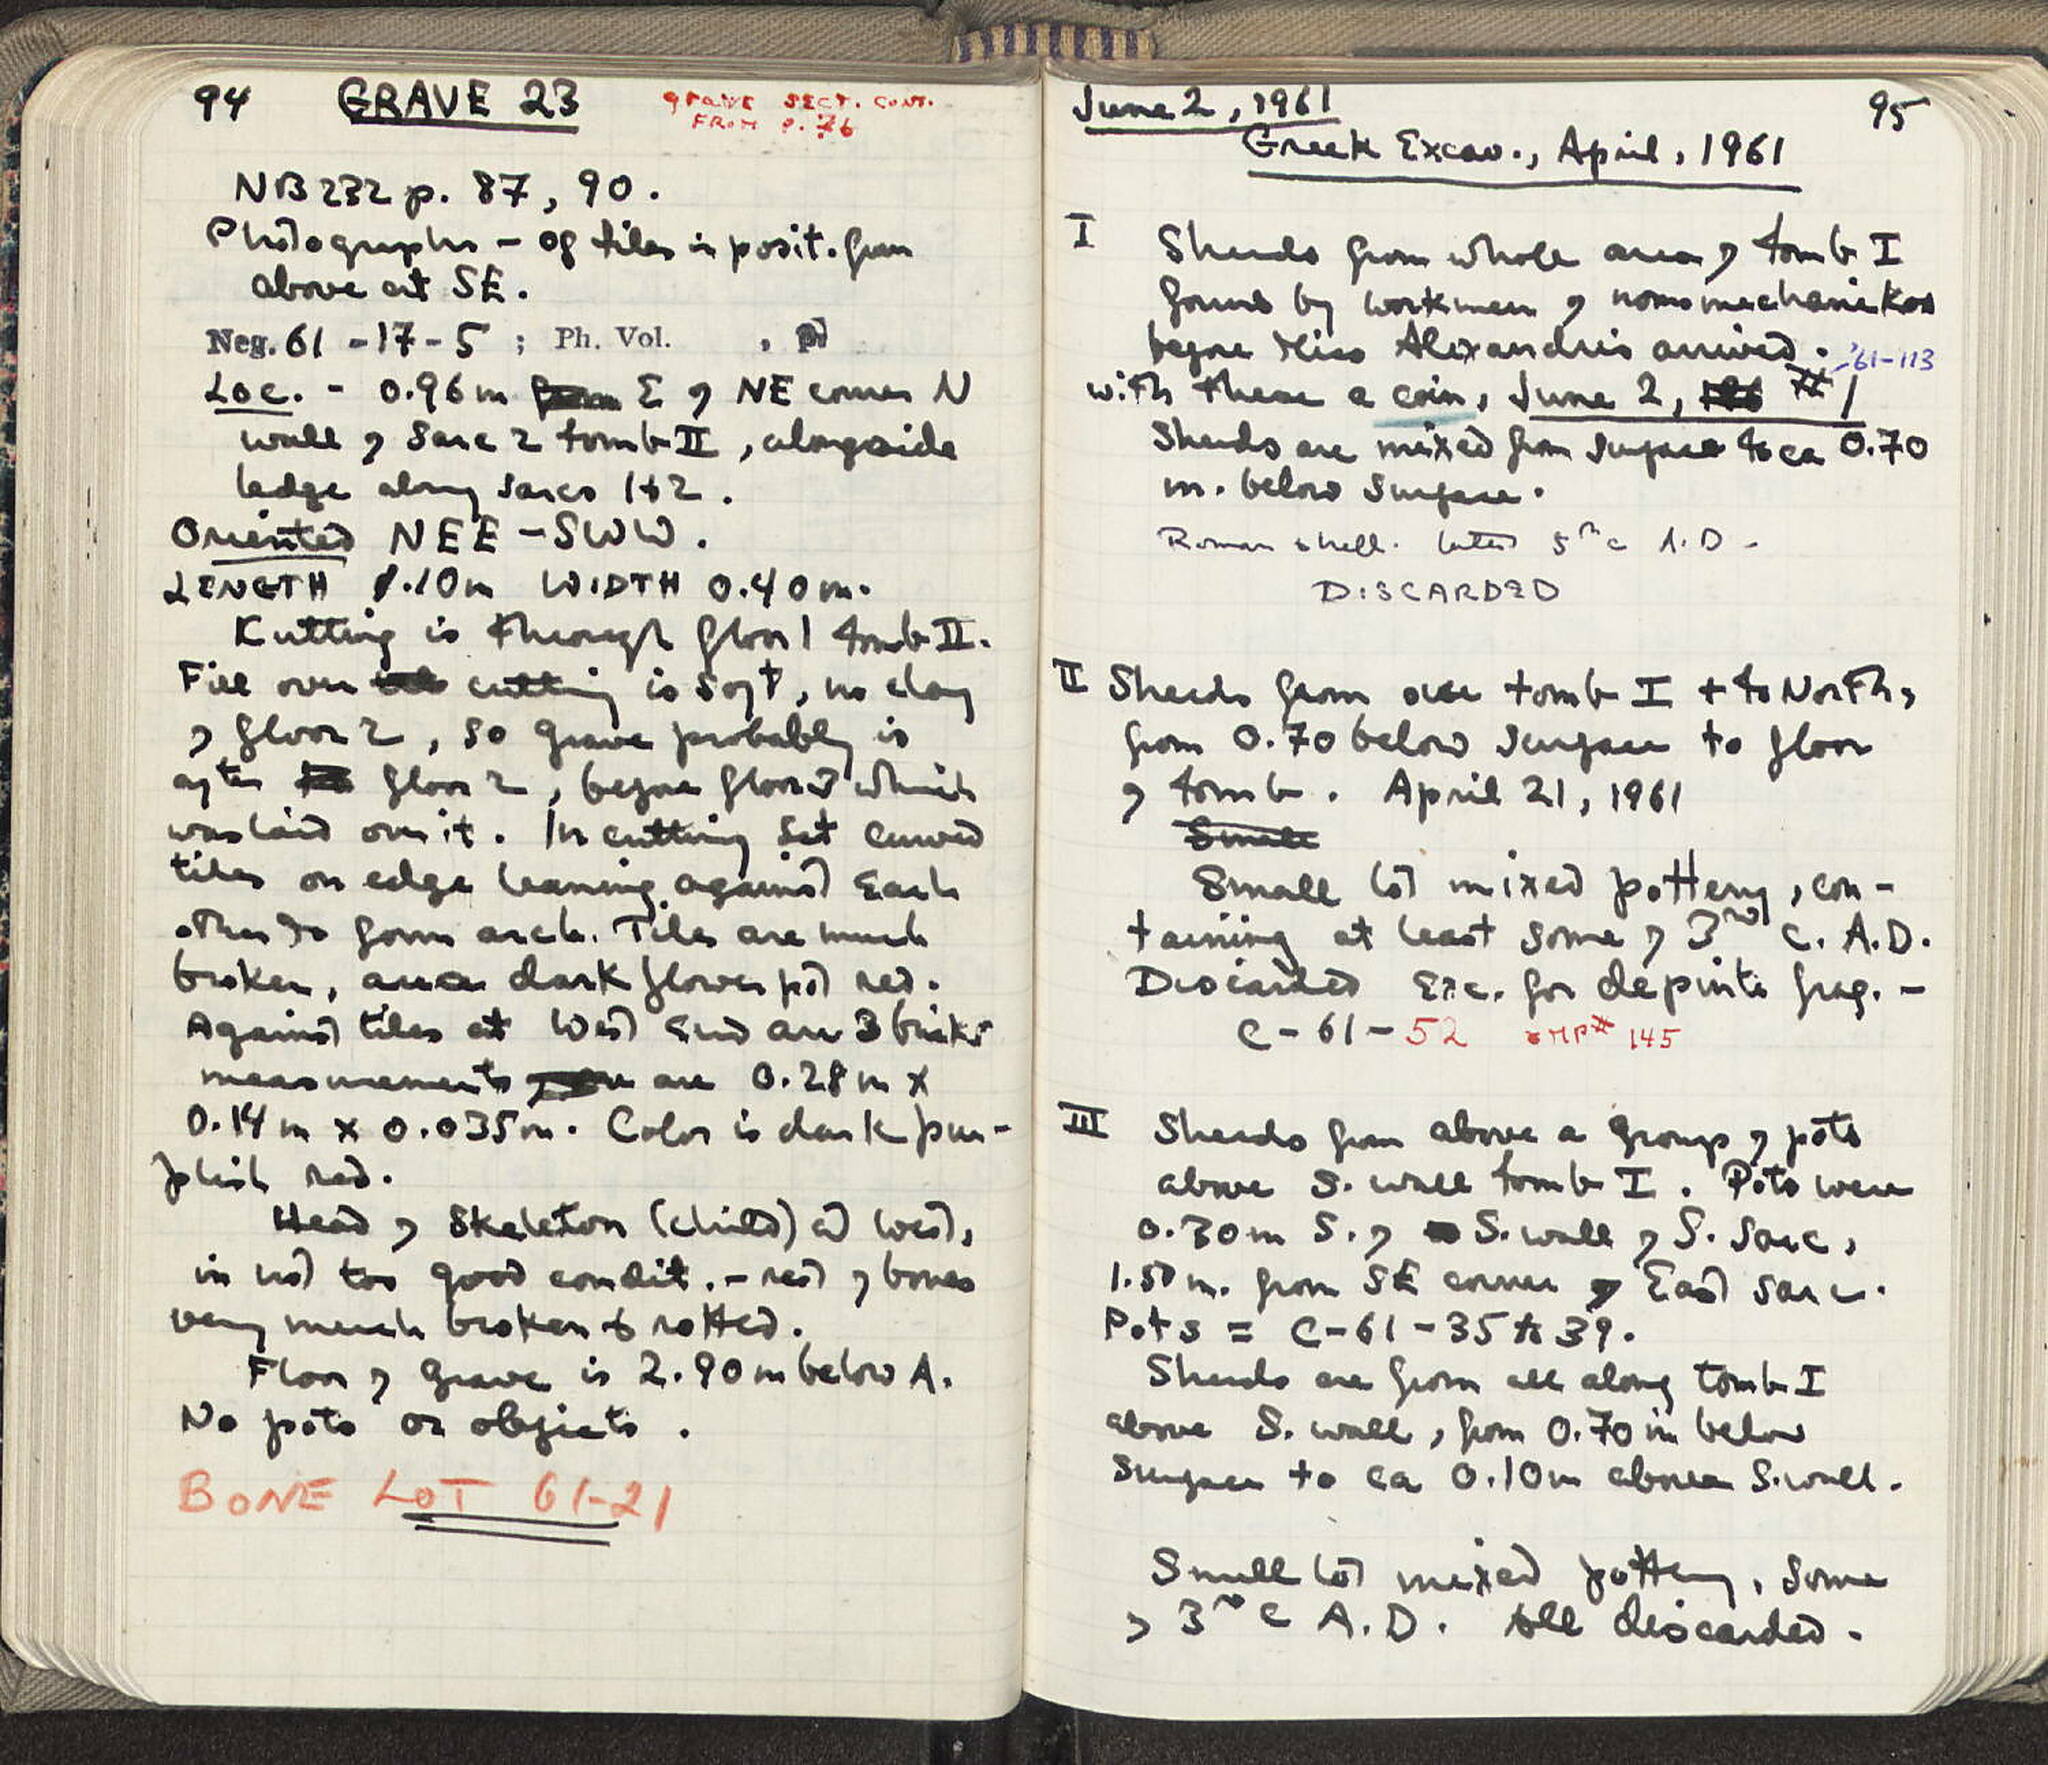 94 GRAVE 23 grave sect. cont.
from p. 76
NB 232 p. 87, 90.
Photographs - of tiles in posit. from
above at SE.
Neg. 61-17-5 ; Ph. Vol. , p
Loc. - 0.96m E of NE corner N
wall of Sarc 2 tomb II, alongside
ledge along sarcs 1 & 2.
Oriented NEE - SWW.
LENGTH 1.10m WIDTH 0.40m.
Kutting is through floor 1 tomb II.
Fill over cutting is soft, no clay
of floor 2, so grave probably is
after floor 2, before floor 3 which
was laid over it. In cutting set curved
tiles on edge leaning against each
other to form arch. Tiles are much
broken, are dark flower pot red.
Against tiles at West End are 3 bricks
measurements are 0.28m x
0.14m x 0.035m. Color is dark pur-
plish red.
Head of Skeleton (child) at West,
in not too good condit. - rest of bones
very much broken & rotted.
Floor of grave is 2.90m below A.
No pots or objects.
BONE LOT 61-21
June 2, 1961 95
Greek Excav., April, 1961
I Sherds from whole area of tomb I
found by workmen of nomomechanikos
before Miss Alexandris arrived.
'61-113
with these a coin, June 2, #1
Sherds are mixed from surface to ca 0.70
m. below surface.
Roman & Hell. later 5th c A.D.
DISCARDED
II Sherds from over tomb I + to North,
from 0.70 below surface to floor
of tomb. April 21, 1961
Small
Small lot mixed pottery, con-
taining at least some of 3rd C. A.D.
Discarded exc. for depinto frag. -
C-61-52 MP# 145
III Sherds from above a group of pots
above S. wall tomb I. Pots were
0.30m S. of S. wall of S. Sarc,
1.50 m. from SE corner of East sarc.
Pots = C-61-35 to 39.
Sherds are from all along tomb I
above S. wall, from 0.70m below
surface to ca 0.10m above S. wall.
Small lot mixed pottery, some
of 3rd C A.D. All discarded.